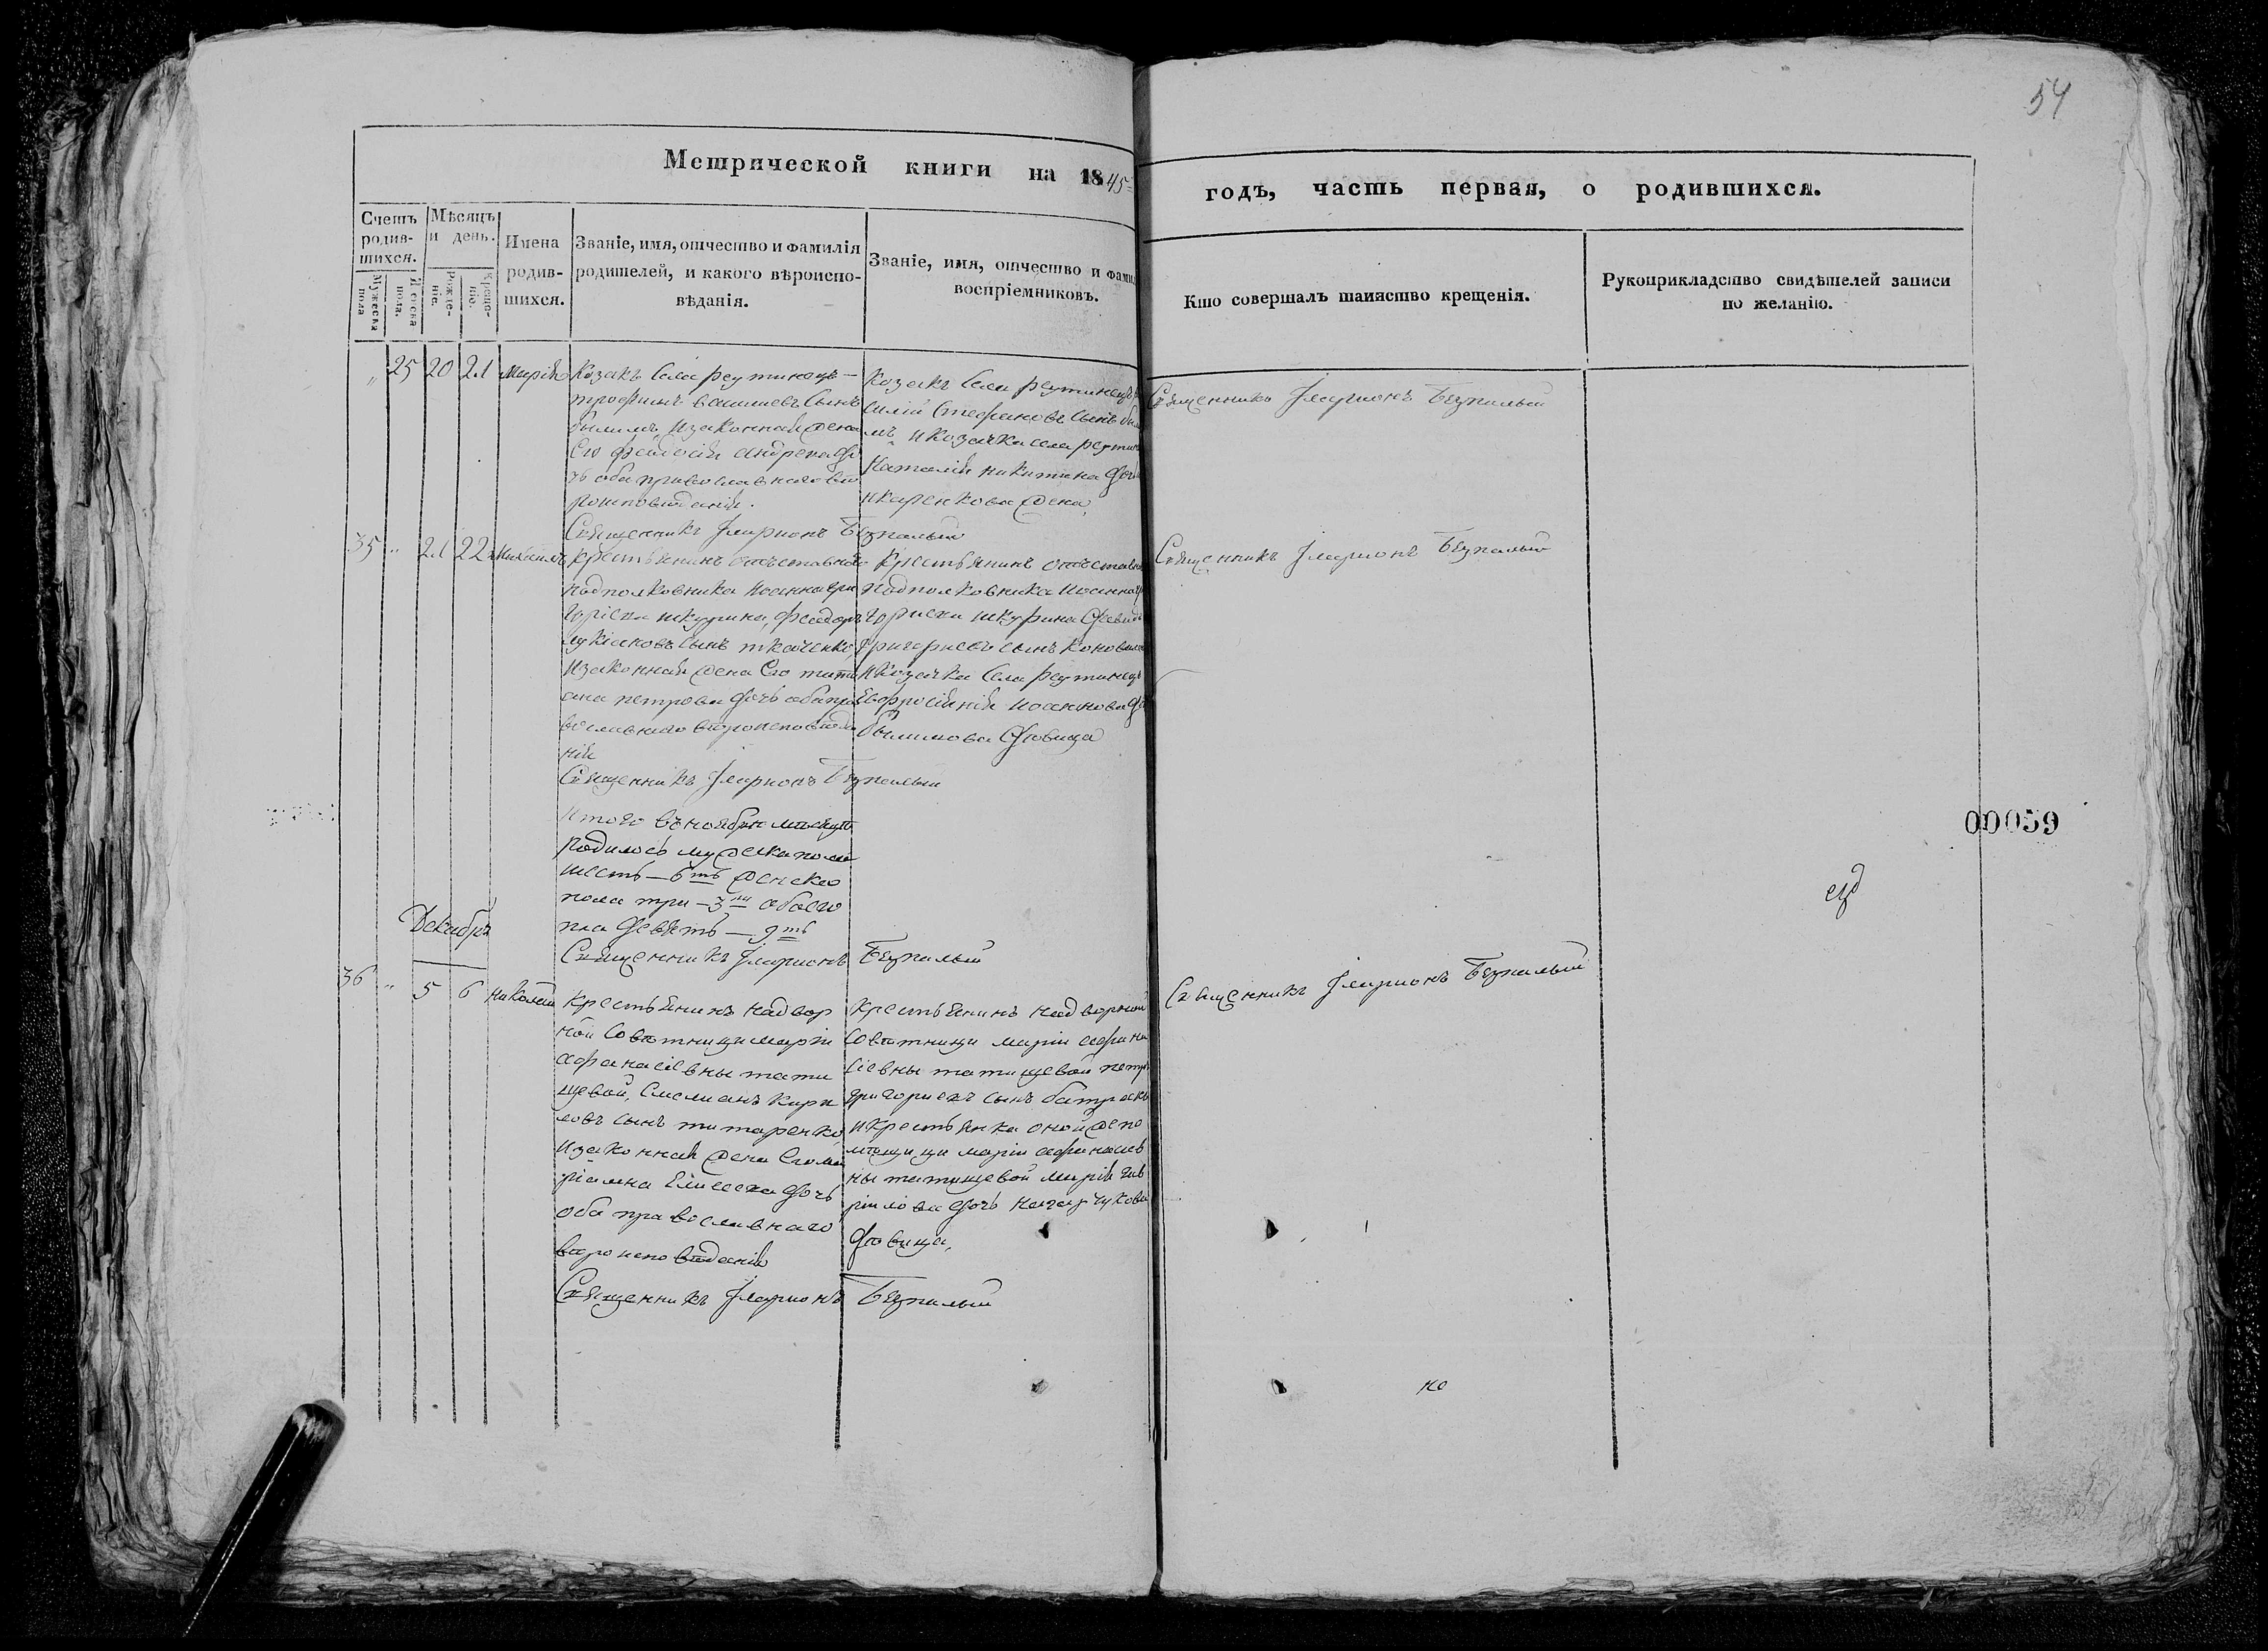 54
Метрической книги на 1845
годъ, часть первая, о родившихся.
Счетъ родив-шихся.
Мужеска пола
Женска пола.
Мѣсяцъ и день.
Рожде-ніе.
Креще-ніе.
Имена
родив-
шихся.
Званіе, имя, отчество и фамилія
родителей, и какого вѣроиспо-
вѣданія.
Званіе, имя, отчество и фами
воспріемниковъ.
Кто совершалъ таинство крещенія.
Рукоприкладство свидѣтелей записи
по желанію.
" 25 20 21 Марія
Козакъ Села реутинецъ
трофимъ Сынъ
былимъ, изаконная жена
Его феодосія андреева до
чь оба православнаго вѣ
роисповѣданія.
Священникъ Іларионъ Безпалый
Козакъ Села реутинецъ
силій Стефановъ Сынъ
мъ икозачка села реутин
Наталія никитина дочь
жена
Священникъ Іларионъ Безпалый
35 " 21 22 Михаилъ
крестьянинъ отъставнаго
подполковника Иоанна гри
горіева шкурина, феодоръ
лукіановъ Сынъ ткаченко,
изаконная жена Его тати
ана петрова дочь оба пра
вославнаго вѣроисповѣда
нія
Священникъ Іларионъ Безпалый
Крестьянинъ отъстав
подполковника Иоанна
гориева шкурина
григориевъ сынъ
икозачка Села реутинецъ
Евфросинія иоаннова
былимова дѣвица
Священникъ Іларионъ Безпалый
Итого въ ноябрѣ мѣсяцѣ
родилось мужеска пола
шесть — 6ть женска
пола три — 3и обоего
пла девять — 9ть
Священникъ Іларионъ Безпалый
Декабрь
36 " 5 6 николай
крестьянинъ надвор
ной Совѣтницы маріи
афанасіевны тати
щевой, Емелианъ кири
ловъ сынъ титаренко,
изаконная жена Его ма
ріамна Елисеева дочь
оба православнаго
вѣроисповѣданія
Священникъ Іларионъ Безпалый
крестьянинъ надворной
Совѣтницы маріи афана
сіевны татищевой петръ
григориевъ сынъ
икрестьянка оной же по
мѣщицы маріи афанасіев
ны татищевой марія гав
ріилова дочь
дѣвица,
Священникъ Іларионъ Безпалый
00059
но